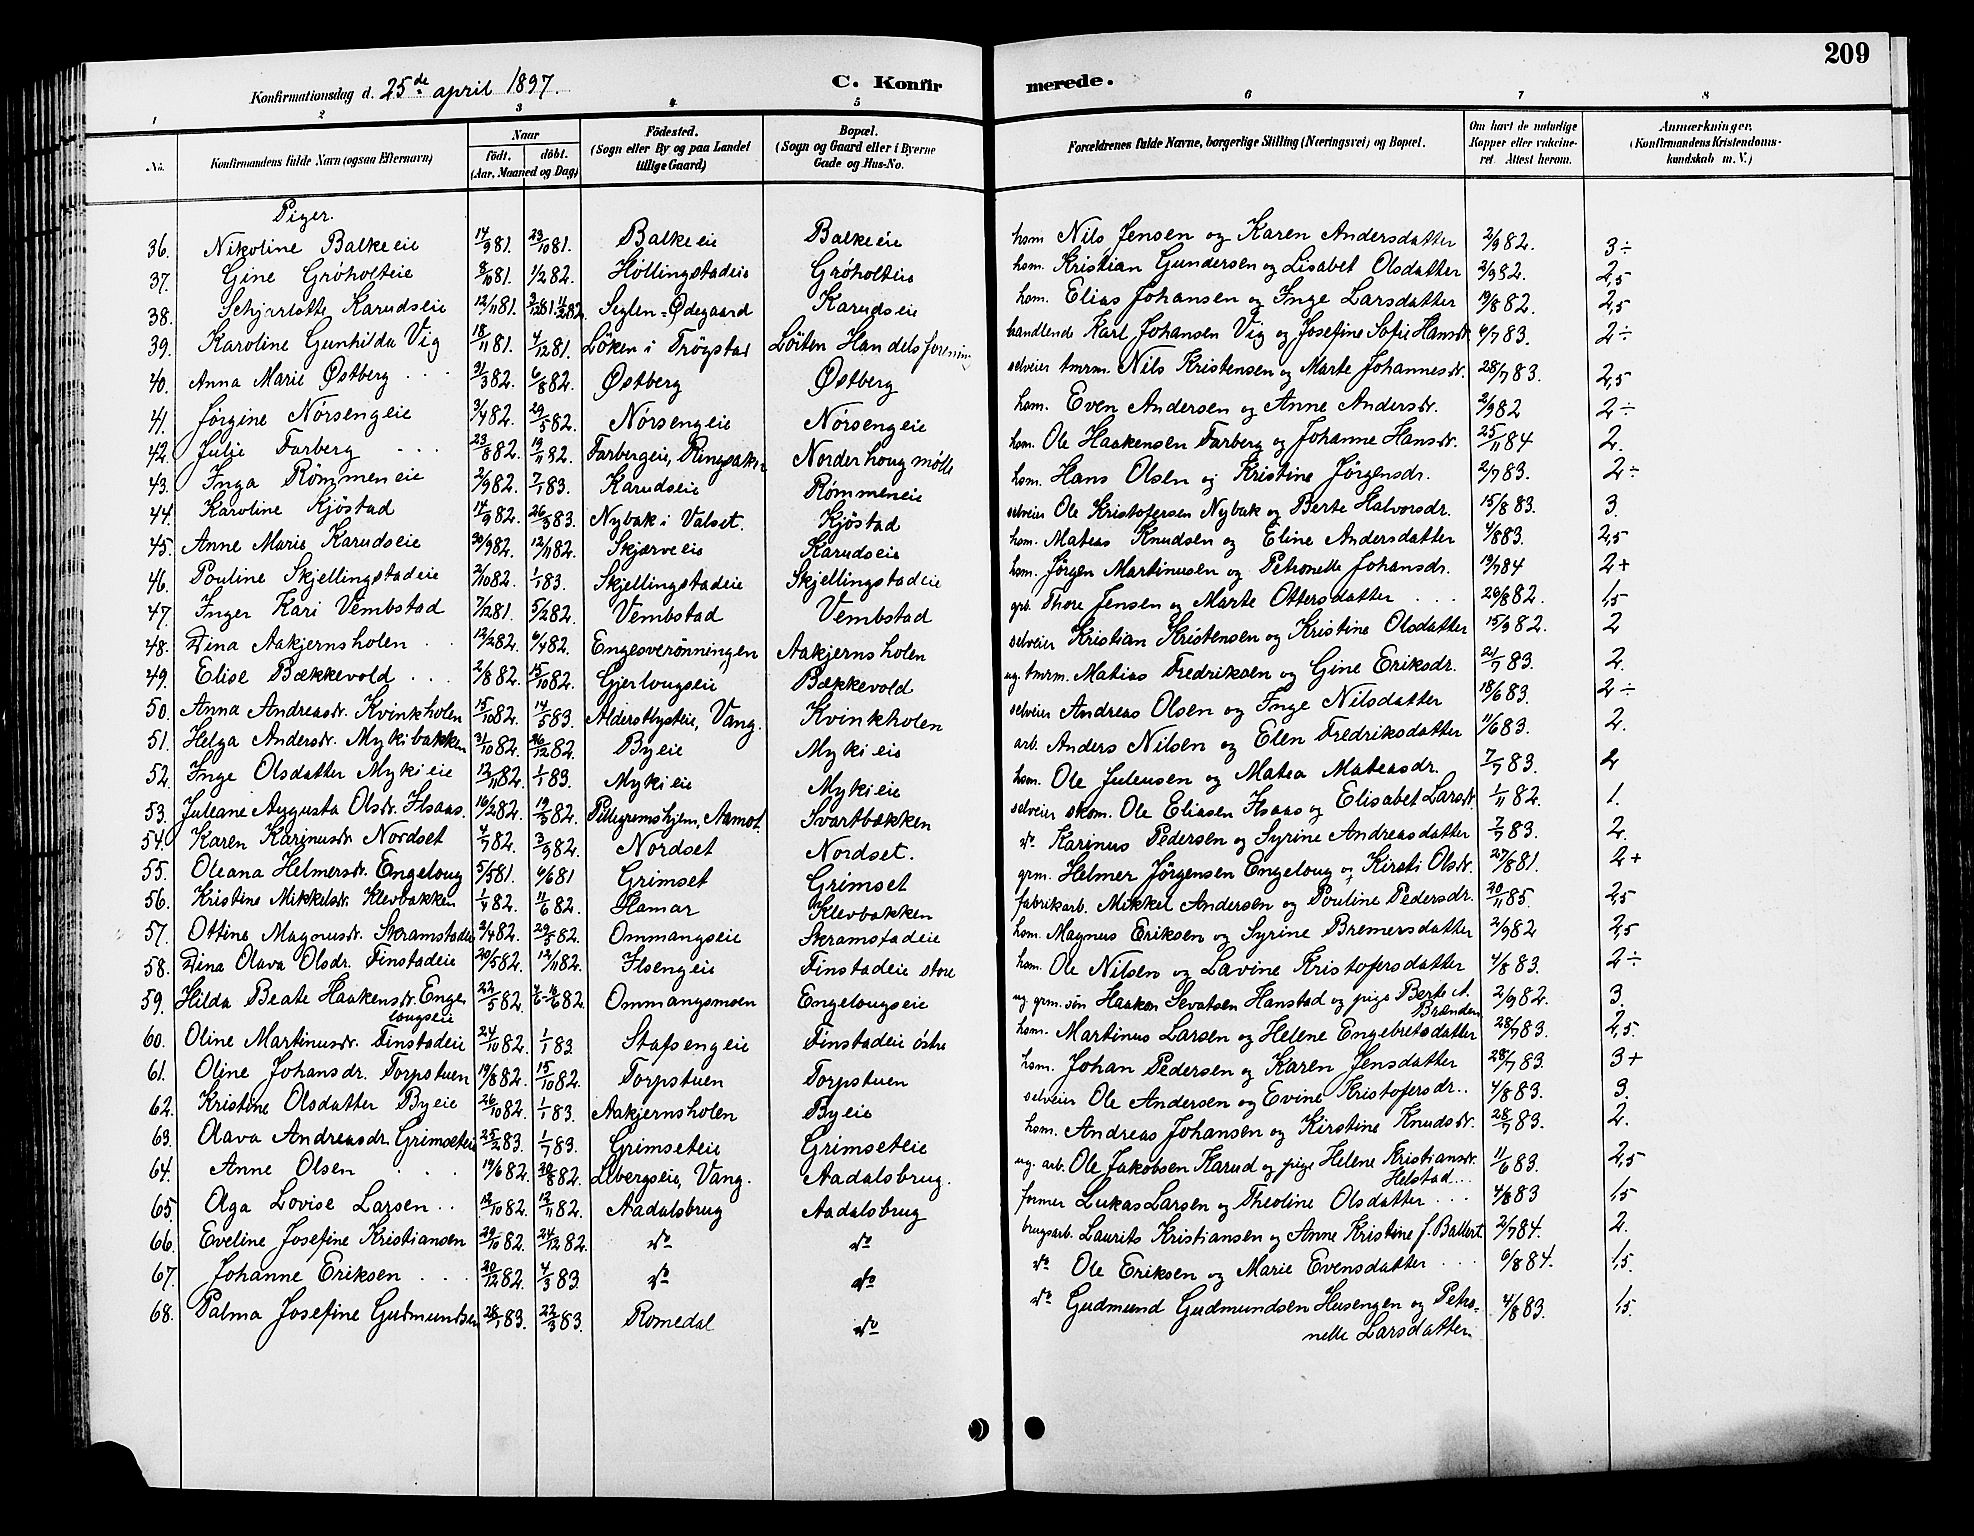 209
Konfirmationsdag d. 25de april 1897.
C. Konfirmerede.
1 2 3 4 5 6 7 8
No. Konfirmandens fulde Navn (ogsaa Efternavn) Naar født. døbt. (Aar, Maaned og Dag) Fødested. (Sogn eller By og paa Landet tillige Gaard) Bopæl. (Sogn og Gaard eller i Byerne Gade og Hus-No. Forældrenes fulde Navne, borgerlige Stilling (Næringsvei) og Bopæl. Om havt de naturlige Kopper eller vakcineret. Attest herom. Anmærkninger. (Konfirmandens Kristendomskundskab m. V.)
Piger.
36. Nikoline Balkeeie 14/9 81. 23/10 81. Balkeeie Balkeeie hsm Nils Jensen og Karen Andersdatter 2/9 82. 3÷
37. Gine Gróholteie 8/10 81. 1/2 82. Höllingstadeie Gróholteie hsm. Kristian Gundersen og Lisabet Olsdatter 2/9 82. 2,5
38. Karudseie 12/11 81. Seglen-Ødegaard Karudseie hsm. Elias Johansen og Inge Larsdatter 19/8 82. 2,5
39. Karoline Gunhilda Vig 18/11 81. 4/12 81. Löken i Trögstad Löiten Handelsforening handlende Karl Johansen Vig og Josefine Sofie Hansdr. 6/7 83. 2÷
40. Anna Marie Østberg 31/3 82. 6/8 82. Østberg Østberg selveier tmrm. Nils Kristensen og Marte Johannesdr. 28/7 83. 2,5
41. Jørgine Nórsengeie 3/4 82. 29/5 82. Nórsengeie Nórsengeie hsm. Even Andersen og Anne Andersdr. 2/9 82 2÷
42. Julie Farberg 23/8 82. 19/11 82. Farbergeie, Ringsaker Norderhoug mölle hsm. Ole Haakensen Farberg og Johanne Hansdr. 25/11 84 2.
43. Inga Römmeneie 2/9 82. 7/1 83. Karudseie Römmeneie hsm. Hans Olsen og Kristine Jörgensdr. 2/7 83. 2÷
44. Karoline Kjöstad 14/9 82. 26/3 83. Nybak i Valset. Kjöstad selveier Ole Kristofersen Nybak og Berte Halvorsdr. 15/8 83. 3.
45. Anne Marie Karudseie 30/9 82. 12/11 82. Skjærveeie Karudseie hsm. Mateas Knudsen og Eline Andersdatter 4/8 83. 2,5
46. Pouline Skjellingstadeie 2/10 82. 1/1 83. Skjellingstadeie Skjellingstadeie hsm. Jörgen Martinusen og Petronelle Johansdr. 19/7 84 2+
47. Inger Kari Vembstad 7/12 81. 5/2 82. Vembstad Vembstad grb. Thore Jensen og Marte Ottersdatter 29/8 82. 1,5
48. Dina Aakjernsholen 12/2 82. 6/4 82. Engesverönningen Aakjernsholen selveier Kristian Kristensen og Kristine Olsdatter 15/9 82. 2
49. Elise Bækkevold 2/8 82. 15/10 82. Gjerlougseie Bækkevold ug. tmrm. Matias Fredriksen og Gine Eriksdr. 21/7 83. 2.
50. Anna Andreasdr. Kvinkholen 15/10 82. 14/5 83. Alderslysteie, Vang. Kvinkholen selveier Andreas Olsen og Inge Nilsdatter 18/6 83. 2÷
51. Helga Andersdr. Mykibakken 31/10 82. 26/12 82. Byeie Mykieie arb. Anders Nilsen og Elen Fredriksdatter 11/6 83. 2.
52. Inge Olsdatter Mykieie 12/11 82. 1/1 83. Mykieie Mykieie hsm. Ole Juleusen og Matea Mateasdr. 7/7 83. 2
53. Juleane Augusta Olsdr. Isaas. 16/2 82. 19/3 82. Pillegremshjem, Aamot. Svartbækken selveier skom. Ole Eliasen Isaas og Elisabet Larsdr. 1/11 82. 1.
54. Karen Karinusdr. Nordset 4/7 82. 3/9 82. Nordset Nordset. do Karinus Pedersen og Syrine Andreasdatter 7/7 83. 2.
55. Oleana Helmersdr. Engeloug 5/5 81. 6/6 81 Grimset Grimset grm. Helmer Jørgensen Engeloug og Kirsti Olsdr. 27/8 81. 2+
56. Kristine Mikkelsdr. Klevbakken 1/4 82. 11/6 82. Hamar Klevbakken fabrikarb. Mikkel Andersen og Pouline Pedersdr. 20/11 85. 2,5
57. Ottine Magnusdr. Skramstadeie 2/4 82. 29/5 82. Ommangseie Skramstadeie hsm. Magnus Eriksen og Syrine Bremersdatter 2/9 82 2,5
58. Dina Olava Olsdr. Finstadeie 20/5 82. 12/11 82. Ilsengeie Finstadeie store hsm. Ole Nilsen og Lavine Kristofersdatter 4/8 83. 2÷
59. Hilda Beate Haakensdr. Engelougseie 22/5 82. Ommangsmoen Engelougseie ug. grm. sön Haakon Sevatsen Hanstad og pige Berte A. Brænden 2/9 82. 3.
60. Oline Martinusdr. Finstadeie 24/10 82. 1/1 83. Stafsengeie Finstadeie östre hsm. Martinus Larsen og Helene Engebretsdatter 28/7 83. 2,5.
61. Oline Johansdr. Torpstuen 19/8 82. 15/10 82. Torpstuen Torpstuen hsm. Johan Pedersen og Karen Jensdatter 28/7 83. 3+
62. Kristine Olsdatter Byeie 26/10 82. 1/1 83. Aakjernsholen Byeie selveier Ole Andersen og Evine Kristofersdr. 4/8 83. 3.
63. Olava Andreasdr. Grimseteie 25/2 83. 1/7 83. Grimseteie Grimseteie hsm. Andreas Johansen og Kirstine Knudsdr. 28/7 83. 2.
64. Anne Olsen 19/6 82. 20/8 82. Libergseie, Vang. Aadalsbrug. ug. arb. Ole Jakobsen Karud og pige Helene Kristiansdr. Helstad 11/6 83. 2,5
65. Aga Lovise Larsen 12/10 82. 12/11 82. Aadalsbrug Aadalsbrug former Lukas Larsen og Theoline Olsdatter 4/8 83 1,5
66. Eveline Josefine Kristiansen 29/10 82. 24/12 82. do do brugsarb. Laurits Kristiansen og Anne Kristine f. Ballert 2/7 84. 2.
67. Johanne Eriksen 20/12 82. 4/3 83. do do do Ole Eriksen og Marie Evensdatter 6/8 84. 1,5.
68. Palma Josefine Gudmundsen 28/1 83. 22/3 83. Romedal do do Gudmund Gudmundsen Husengen og Petronelle Larsdatter 4/8 83. 1,5